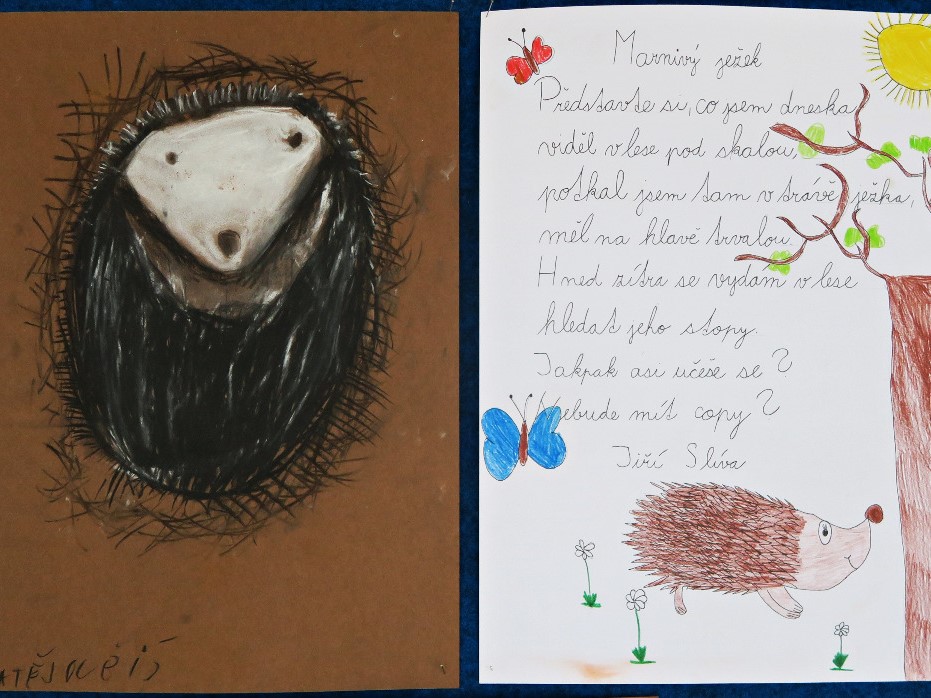 Marnivý ježek
Představte si, co jsem dneska
viděl v lese pod skalou,
potkal jsem tam v trávě ježka,
měl na hlavě trvalou.
Hned zítra se vydám v lese
hledat jeho stopy.
Jakpak asi učeše se?
Nebude mít copy?
Jiří Slíva